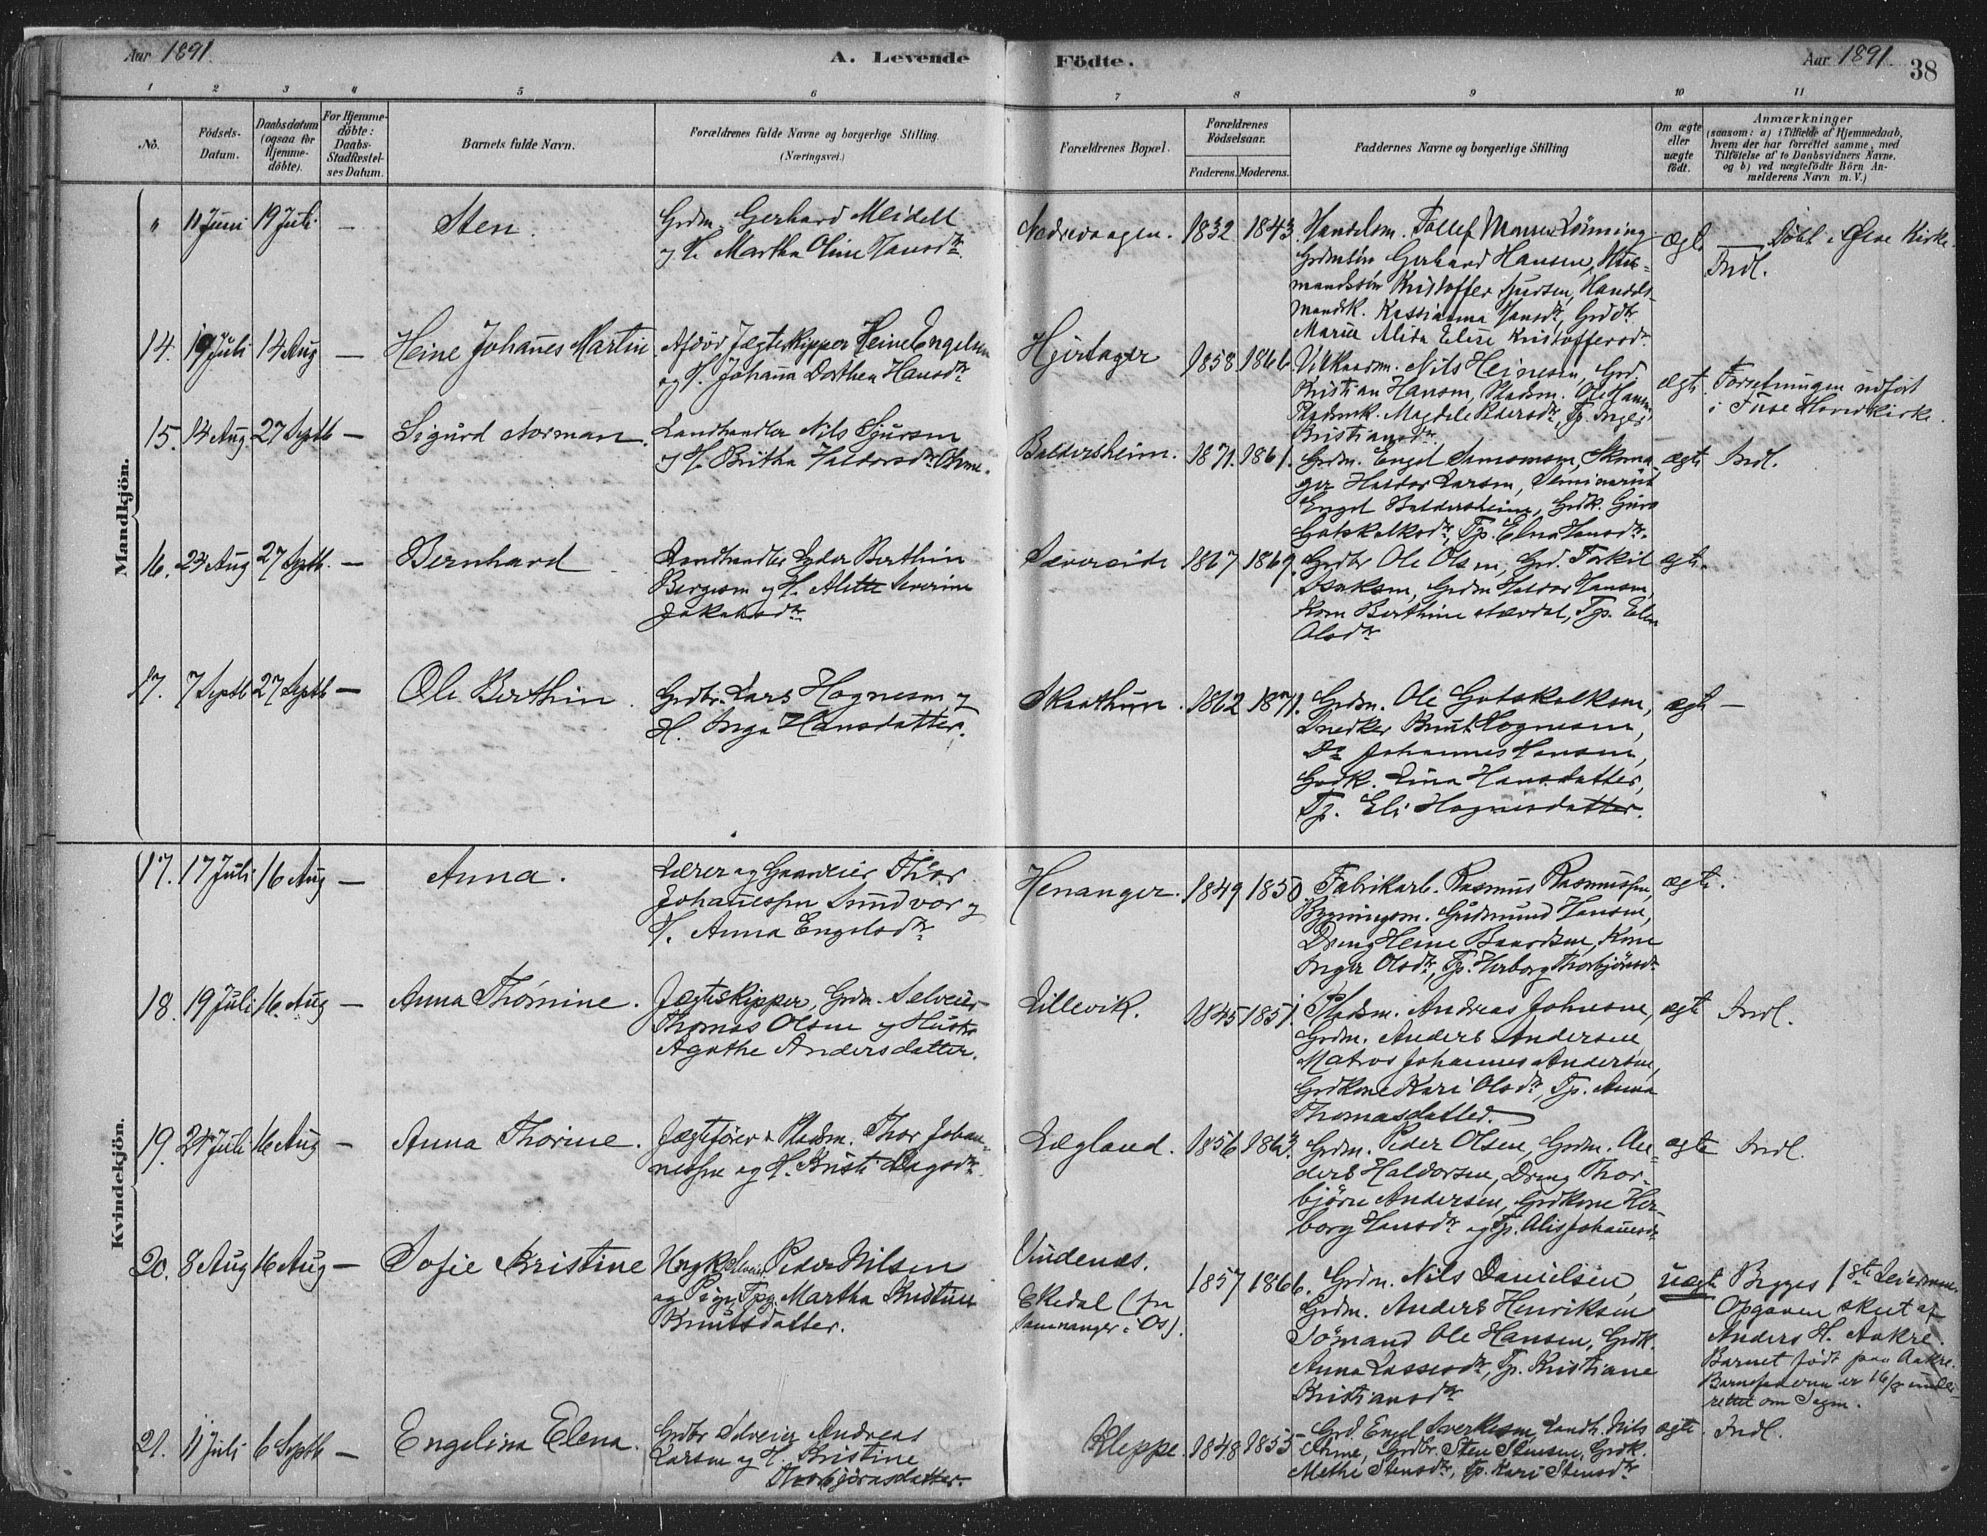 Aar 1891.
A. Levende Födte.
Aar 1891.
38
1 2 3 4 5 6 7 8 9 10 11
No.
Födsels-Datum.
Daabsdatum (ogsaa for Hjemme-döbte).
For Hjemme-döbte: Daabs-Stadfæstel-ses Datum.
Barnets fulde Navn.
Forældrenes fulde Navne og borgerlige Stilling.
(Næringsvei.)
Forældrenes Bopæl.
Forældrenes Födselsaar.
Faderens. Moderens.
Faddernes Navne og borgerlige Stilling
Om ægte eller uægte födt.
Anmærkninger
(saasom: a) i Tilfælde af Hjemmedaab,
hvem der har forrettet samme, med
Tilföielse af to Daabsvidners Navne,
og b) ved uægtefödte Börn An-
melderens Navn m. V.)
Mandkjön.
" 11 Juni 19 Juli –
Sten.
Grdm. Gerhard Meidell
og H. Martha Oline Jansdtr.
Nedrevaagen. 1832 1843.
Handelsm. Tollef Lönning
Grdmsön Gerhard Hansen, Hus-
mandssön Kristoffer Sjursen, Handels-
mandk. Kassianna Jansdtr, Grdtr
Marie Alida Elise Kristoffersdtr.
ægte
Döbt i Ølve Kirke.
Indl.
14. 19 Juli 14 Aug –
Heine Johanes Martin
Afdöd Jægteskipper Heine Engelsen
og H. Johana Dorthea Hansdtr
Hjertager 1858. 1866.
Vilkaarsm. Nils Heinesen, Grd.
Kristian Hansen, Pladsm. Ole Hansen
Pladsmk. Magdele Larsdtr, Tp. Inger
Kristiansdtr
ægte
Forretningen udfört
i Fuse Hovedkirke.
15. 14 Aug. 27 Septb –
Sigurd Norman.
Landhandler Nils Sjursen
og H. Britha Haldorsdtr
Baldersheim. 1871. 1861.
Grdm. Engel Samsonsen, Skoma-
ger Haldor Larsen, Seminarist
Engel Baldersheim, Grdk. Guro
Gotskalksdtr, Tp. Elna Hansdtr.
ægte
Indl.
16. 23 Aug 27 Septb. –
Bernhard
Landhandler Lyder Berthin
Bergesen og H. Alette Severine
Jakobsdtr
Sævereide 1867 1869.
Grdbr Ole Olsen, Grd. Torkil
Isaksen, Grdm Haldor Hansen,
Kone Berthine Nævdal, Tp. Elen
Olsdtr
ægte.
17. 7 Septb 27 Septb –
Ole Berthin.
Grdbr. Lars Hognesen og
H. Inga Hansdatter.
Skaathun. 1862 1871.
Grdm. Ole Gotskalksen,
Snedker Knut Hognesen,
Do Johannes Hansen,
Grdk. Lina Hansdatter,
Tp. Eli Hognesdatter.
ægte –
Kvindekjön.
17. 17 Juli 16 Aug –
Anna.
Lærer og Gaardeier Thor
Johanessen Sundvor og
H. Anna Engelsdtr
Henanger. 1849 1850
Fabrikarb. Rasmus Rasmussen,
Bygningsm. Gudmund Hansen,
Dreng Heine Baardsen, Kone
Inger Olsdtr, Tp. Herborg Thorbjörnsdtr
ægte.
18. 19 Juli 16 Aug –
Anna Thomine.
Jægteskipper, Grdm. Selveier
Thomas Olsen og Hustru
Agathe Andersdatter.
Lillevik. 1845 1851.
Pladsm. Andreas Johnsen,
Grdm. Anders Andersen,
Matros Johannes Andersen,
Grdkone Kari Olsdtr, Tp. Anna
Thomasdatter.
ægte
Indl.
19. 24 Juli 16 Aug –
Anna Thorine.
Jægteförer & Pladsm. Thor Johan-
nessen og H. Kristi Dagsdtr.
Lægland. 1856 1863.
Grdm. Peder Olsen, Grdm. An-
ders Haldorsen, Dreng Thor-
björn Andersen, Grdkone Her-
borg Hansdtr og Tp. Alis Johanesdtr
ægte
Indl.
20. 8 Aug 16 Aug –
Sofie Kristine
Ungk. Selveier Peder Nilsen
og Pige, Tpg. Martha Kristine
Knutsdatter.
Vindenes.
Ekedal (fra
Samnanger i Os).
1857 1866.
Grdm. Nils Danielsen
Grdm. Anders Henriksen
Sömand Ole Hansen, Grdk.
Anna Lassesdtr, Tp. Kristiane
Kristiansdtr
uægte
Begges 1ste Leiermaal.
Opgaven skeet af
Anders H. Aakre.
Barnet födt paa Aakre.
Barnefaderen er 16/8 under-
rettet om Sagen.
21. 11 Juli 6 Septb –
Engelina Elena.
Grdbr Selveier Andreas
Larsen og H. Kristine
Thorbjörnsdatter.
Kleppe. 1848 1855
Grd. Engel Sverkesen, Landh. Nils
Grdbr. Sten Stensen, Grdk.
Methe Stensdtr, Tp. Kari Stensdtr
ægte.
Indl.